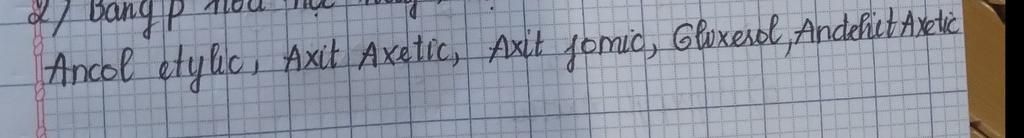 2) Bằng p
Ancol etylic, Axit Axetic, Axit fomic, Glixerol, Andehit Axetic